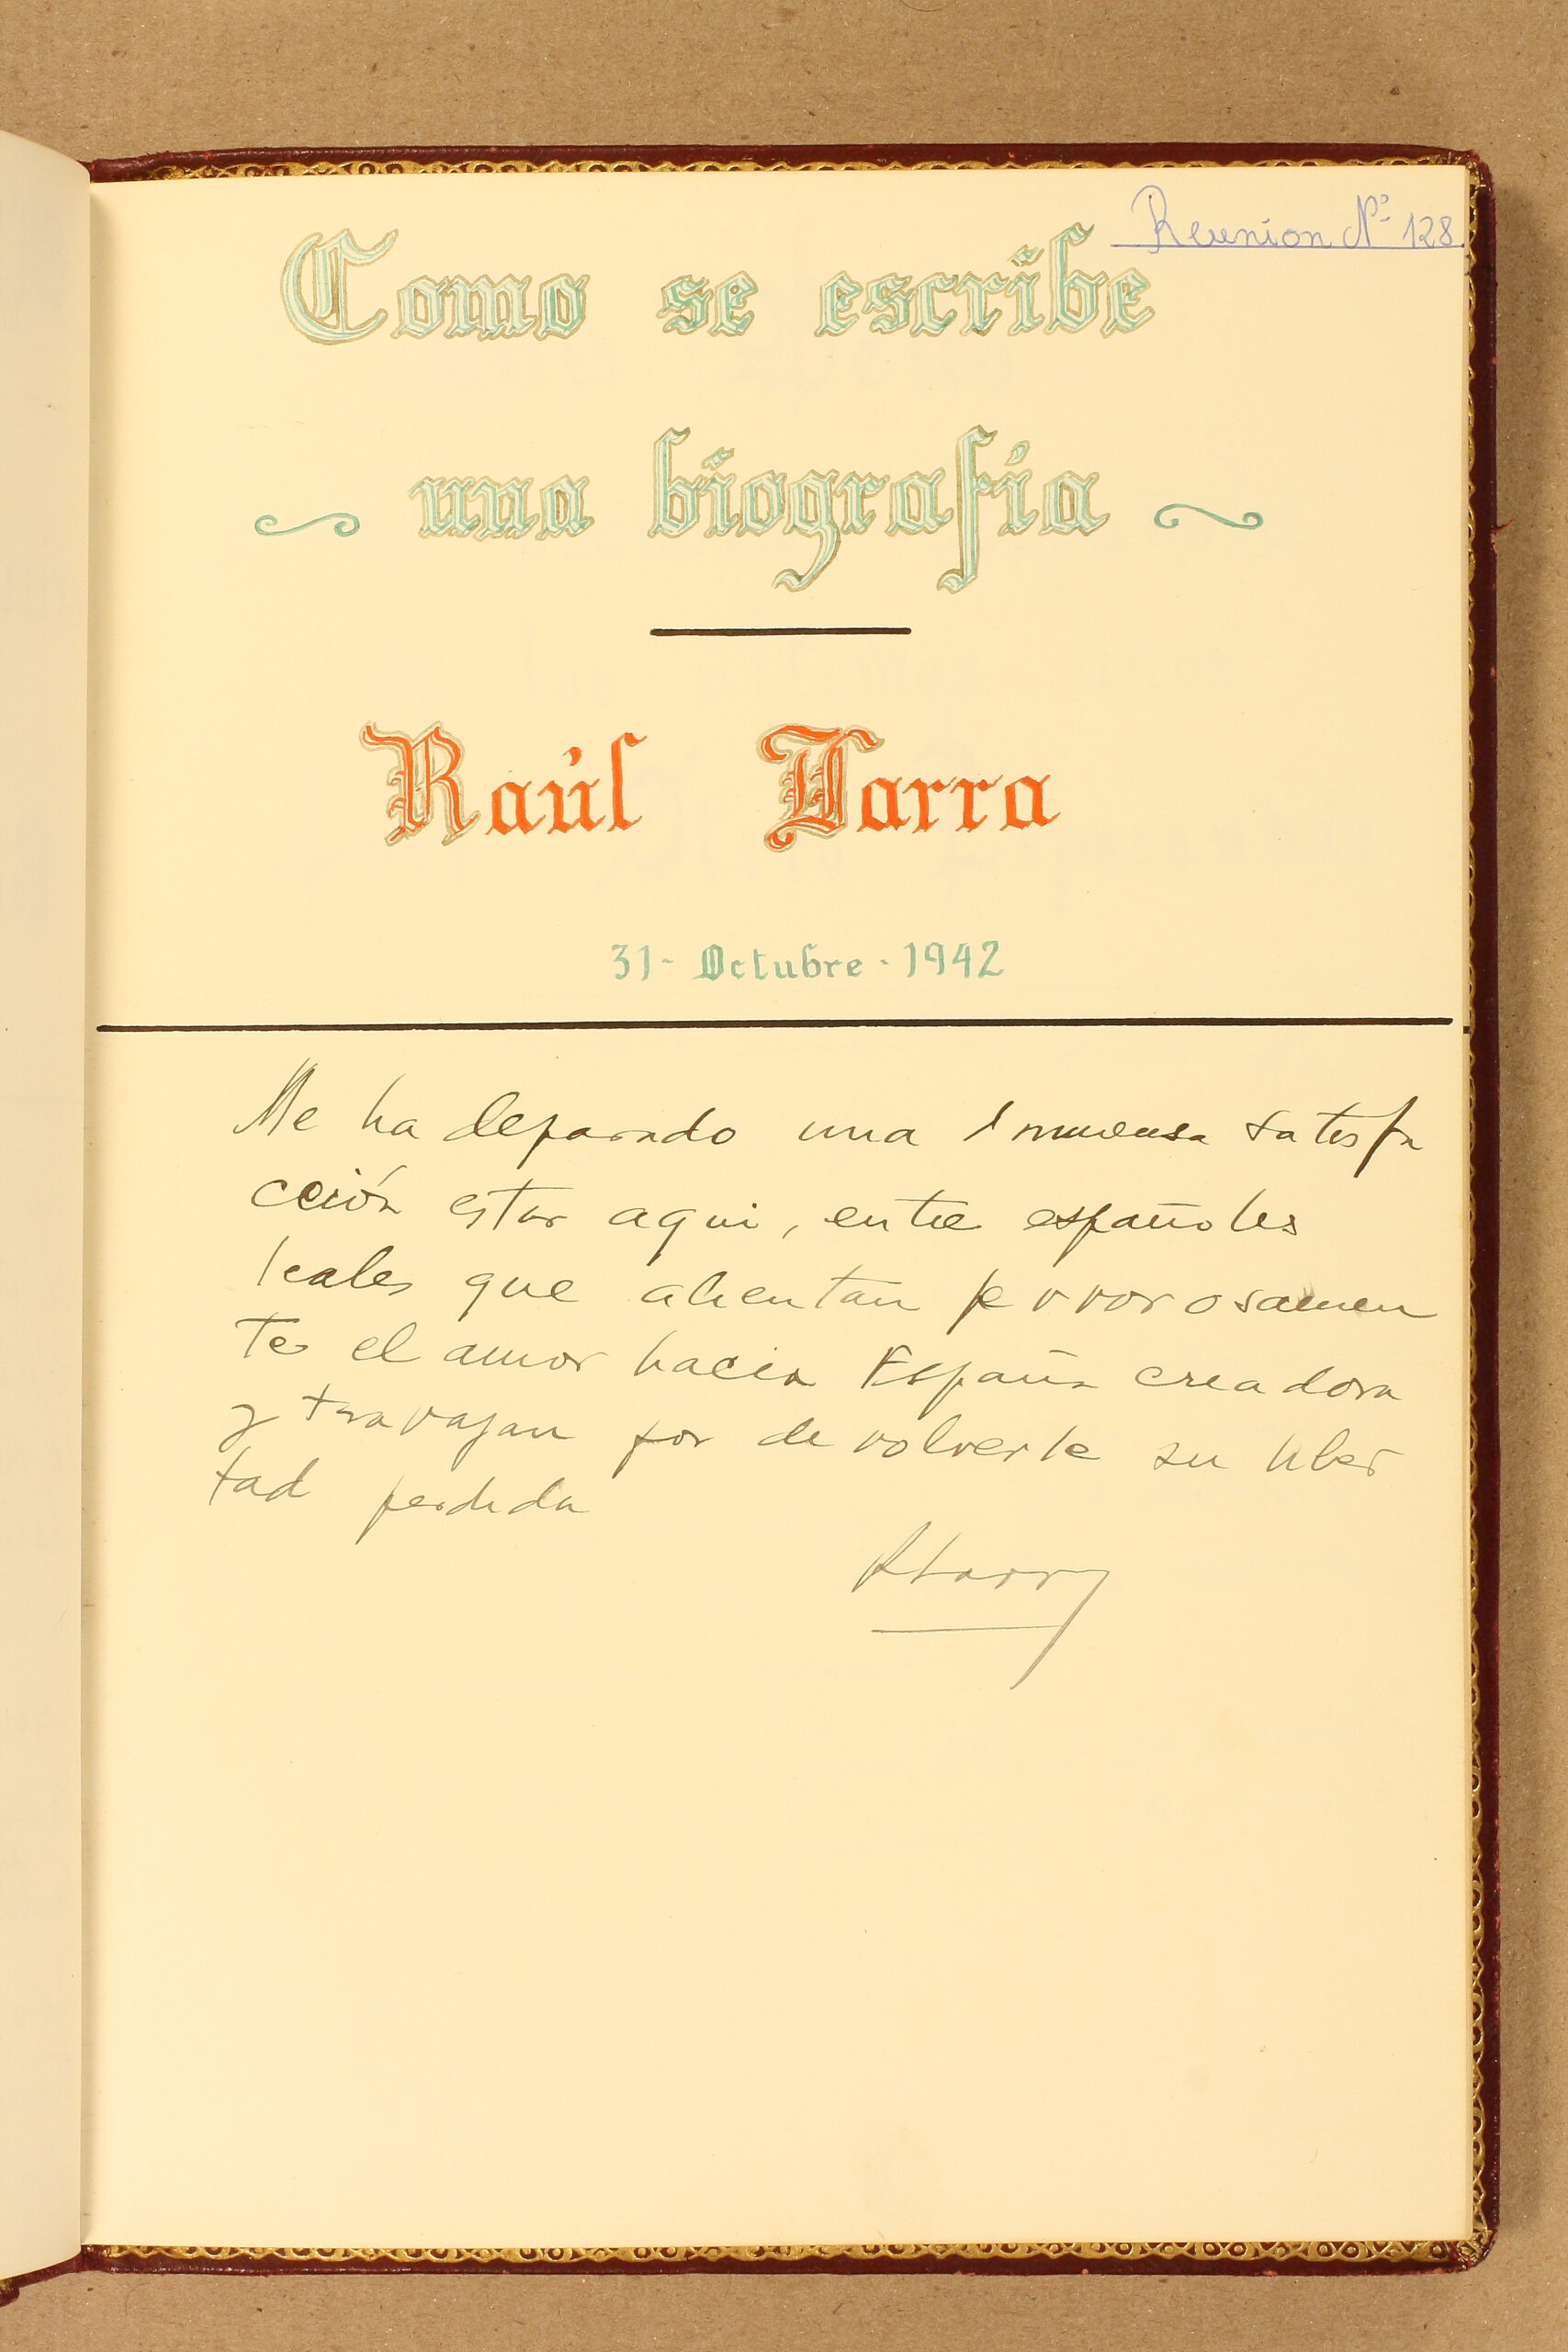 Reunion Nº 128
Como se escribe
una biografía
Raúl Larra
31 - Octubre - 1942
Me ha deparado una inmensa satisfa
cción estar aqui, entre españoles
leales que alientan fervorosamen
te el amor hacia España creadora
y travajan por devolverle su liber
tad perdida
RLarra